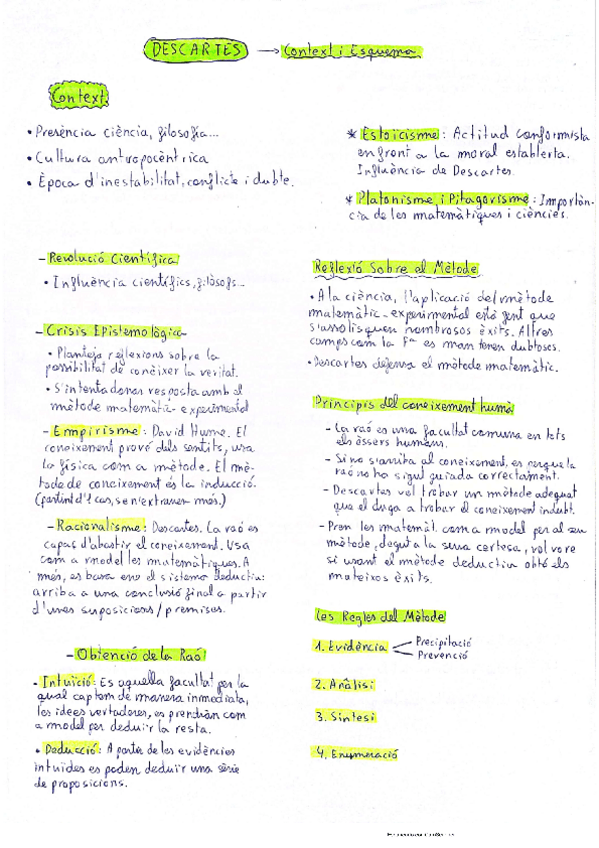 DESCARTES → Context i Esquema
Context
• Presència ciència, filosofia...
• Cultura antropocèntrica
• Època d'inestabilitat, conflicte i dubte.
* Estoicisme: Actitud conformista
enfront a la moral establerta.
Influència de Descartes.
* Platonisme i Pitagorisme: Importàn-
cia de les matemàtiques i ciències.
- Revolució Científica
• Influència científics, filòsofs...
- Crisis Epistemològica
• Planteja reflexions sobre la
possibilitat de conèixer la veritat.
• S'intenta donar resposta amb el
mètode matemàtic-experimental
- Empirisme: David Hume. El
coneixement prové dels sentits, usa
la física com a mètode. El mè-
tode de coneixement és la inducció.
(partint d'1 cas, se n'extrauen més.)
- Racionalisme: Descartes. La raó és
capaç d'abastir el coneixement. Usa
com a model les matemàtiques. A
més, es basa en el sistema deductiu:
arriba a una conclusió final a partir
d'unes suposicions/premises.
- Obtenció de la Raó:
- Intuïció: És aquella facultat per la
qual captem de manera inmediata,
les idees vertaderes, es prendràn com
a model per deduïr la resta.
• Deducció: A partir de les evidències
intuïdes es poden deduïr una sèrie
de proposicions.
Reflexió Sobre el Mètode
• A la ciència, l'aplicació del mètode
matemàtic-experimental està fent que
s'assolisquen nombrosos èxits. Altres
camps com la Fª es mantenen dubtosos.
• Descartes defensa el mètode matemàtic.
Principis del coneixement humà
- La raó és una facultat comuna en tots
els éssers humans.
- Si no s'arriba al coneixement, és perque la
raó no ha sigut guiada correctament.
- Descartes vol trobar un mètode adequat
que el duga a trobar el coneixement indubt.
- Pren les matemàt. com a model per al seu
mètode, degut a la seua certesa, vol vore
si usant el mètode deductiu obté els
mateixos èxits.
Les Regles del Mètode
1. Evidència
Precipitació
Prevenció
2. Anàlisi
3. Síntesi
4. Enumeració